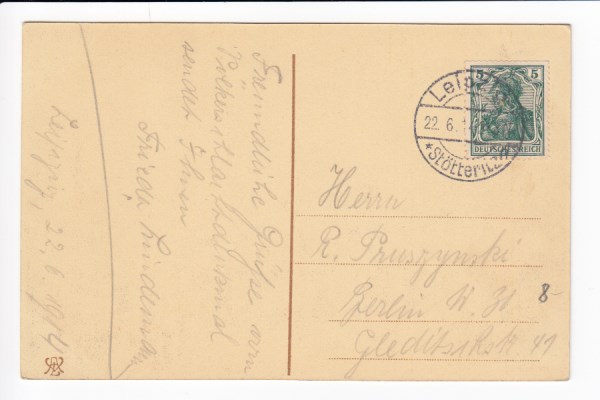 Leipzig, 22. 6. 1914
Freundliche Grüße vom
Völkerschlachtdenkmal
sendet Ihnen
Frieda Lindemann
Leipzig
22. 6. 1
*Stötteritz
5
DEUTSCHES REICH
Herrn
R. Pruszynski
Berlin W. 30
8-
Gleditschstr 41